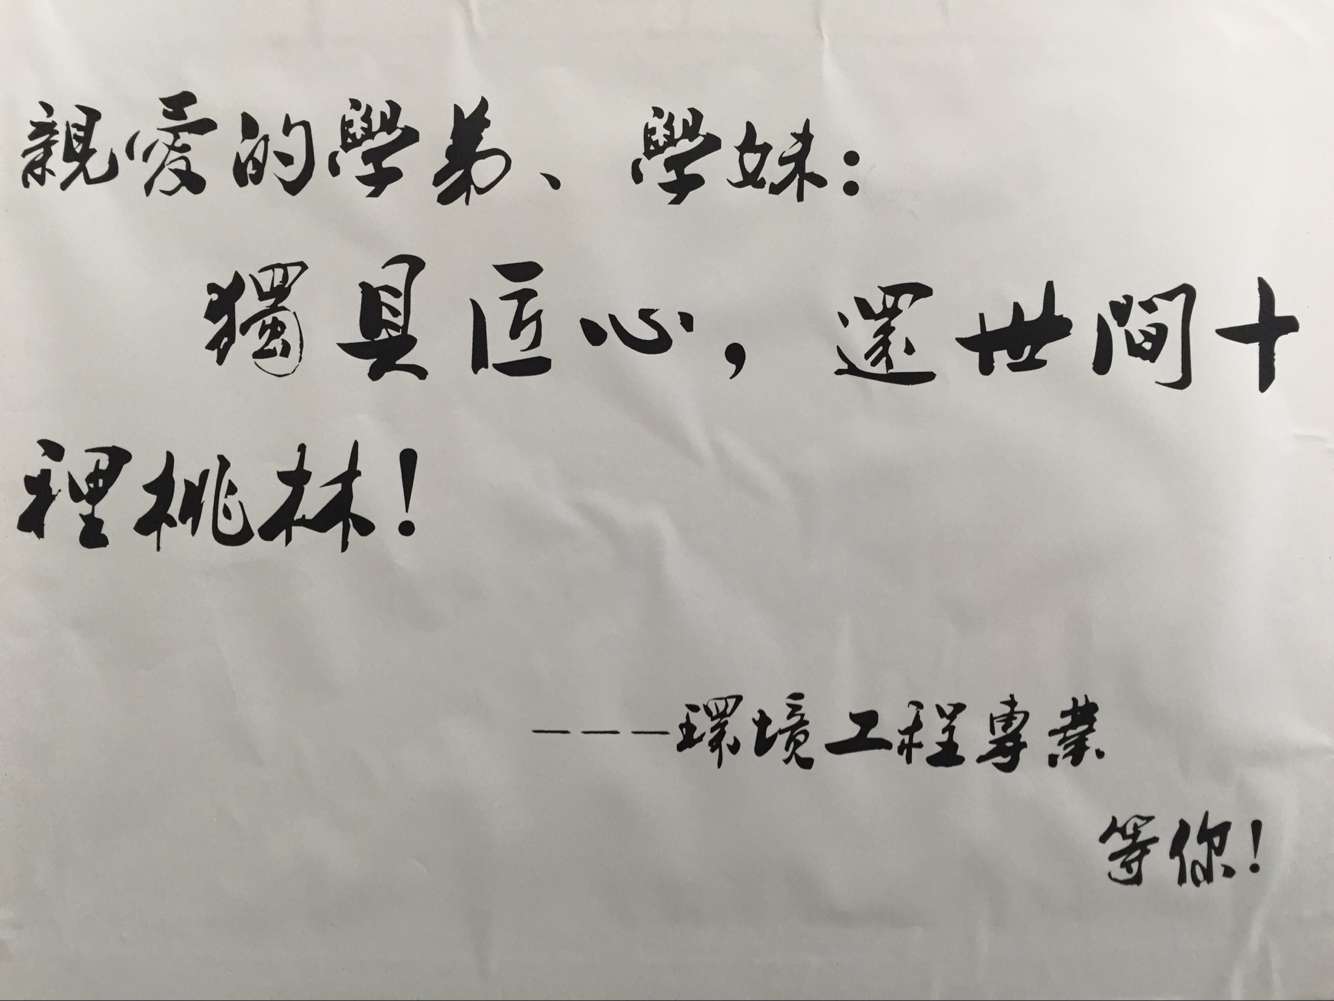 親愛的學弟、學妹：
獨具匠心，還世間十
裡桃林！
---環境工程專業
等你！